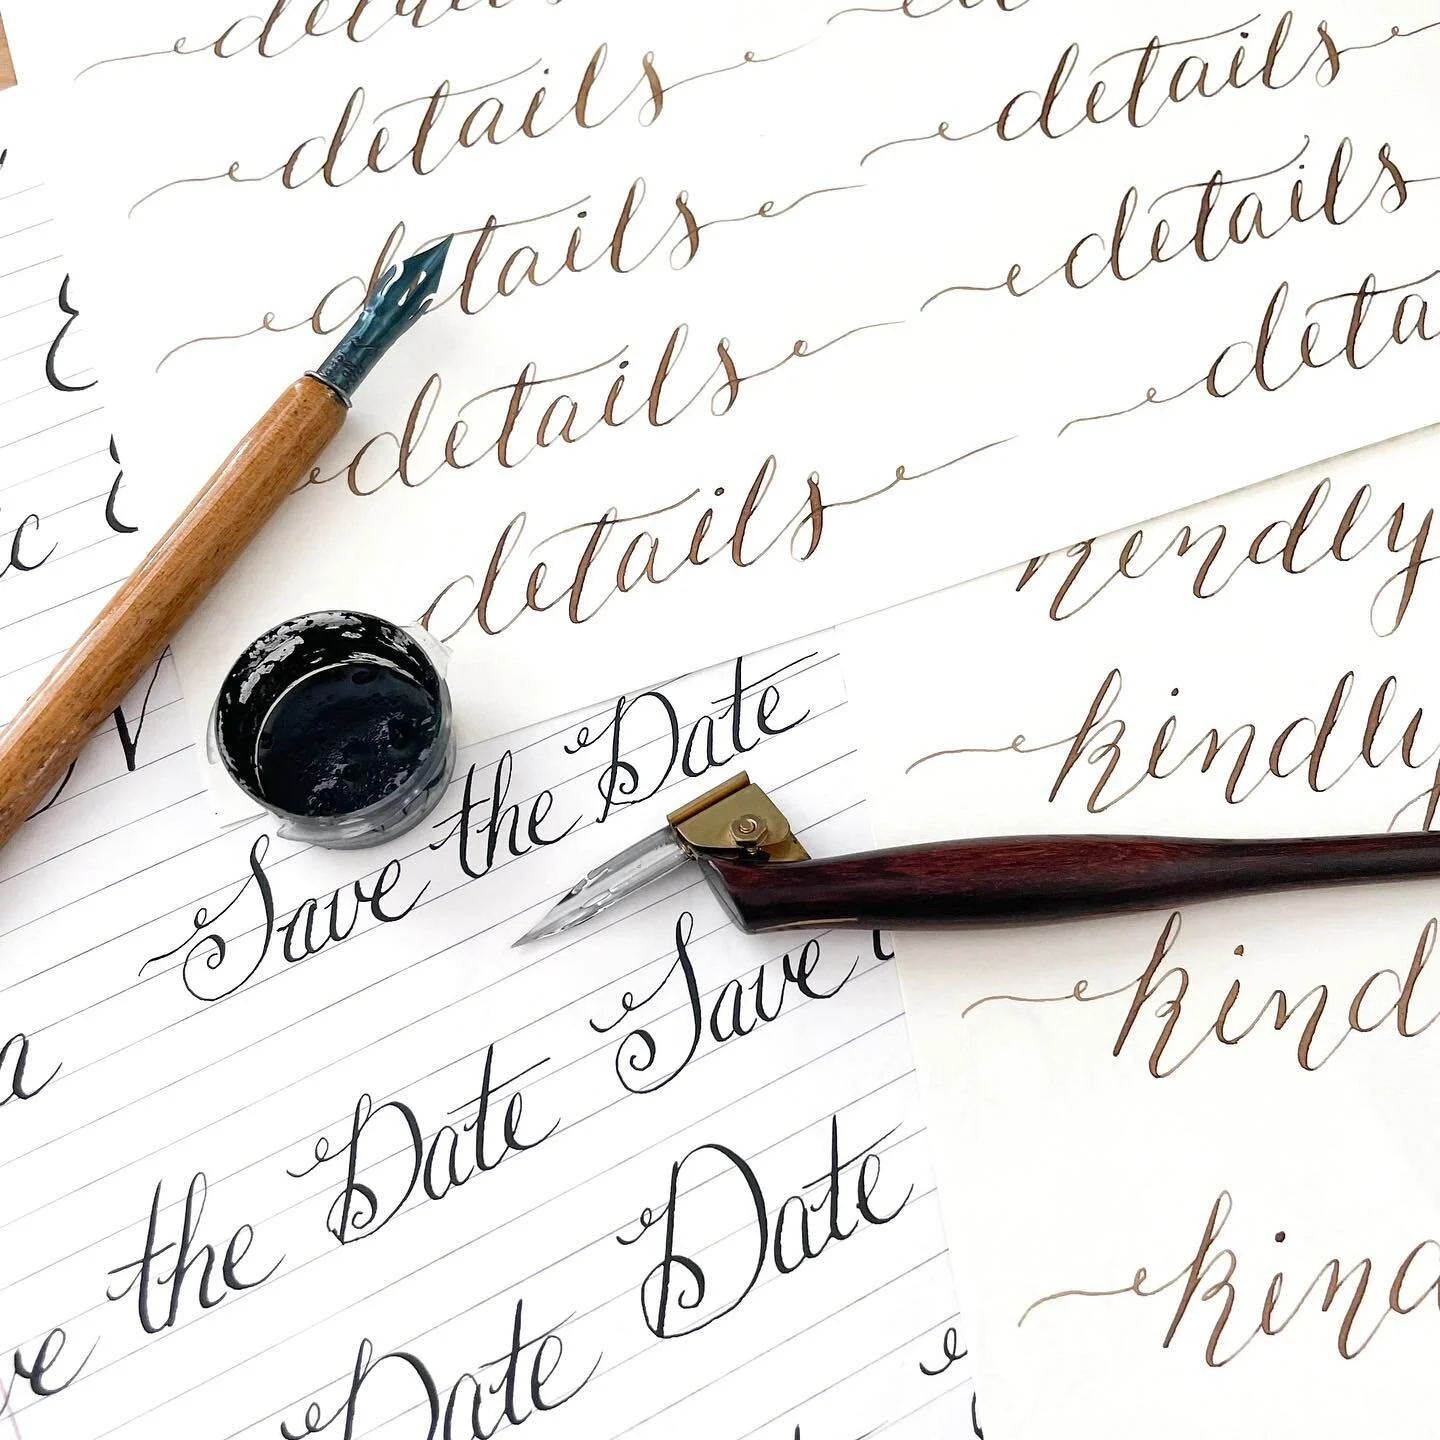 details
details
details
details
details
details
details
details
kindly
kindly
kind
kind
Save the Date
Save
the Date
Date
Date